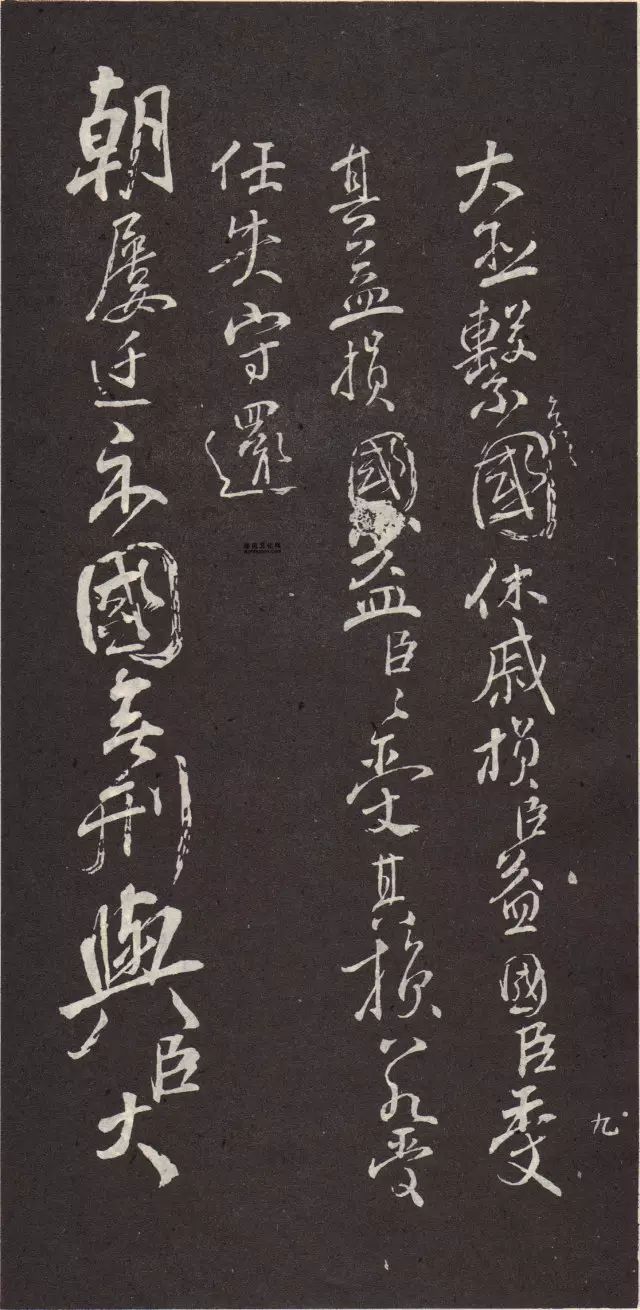 九
大繫國休戚損臣益國臣受
其益損國益臣々受其損若受
任失守還
朝屢迁示國無刑與臣大